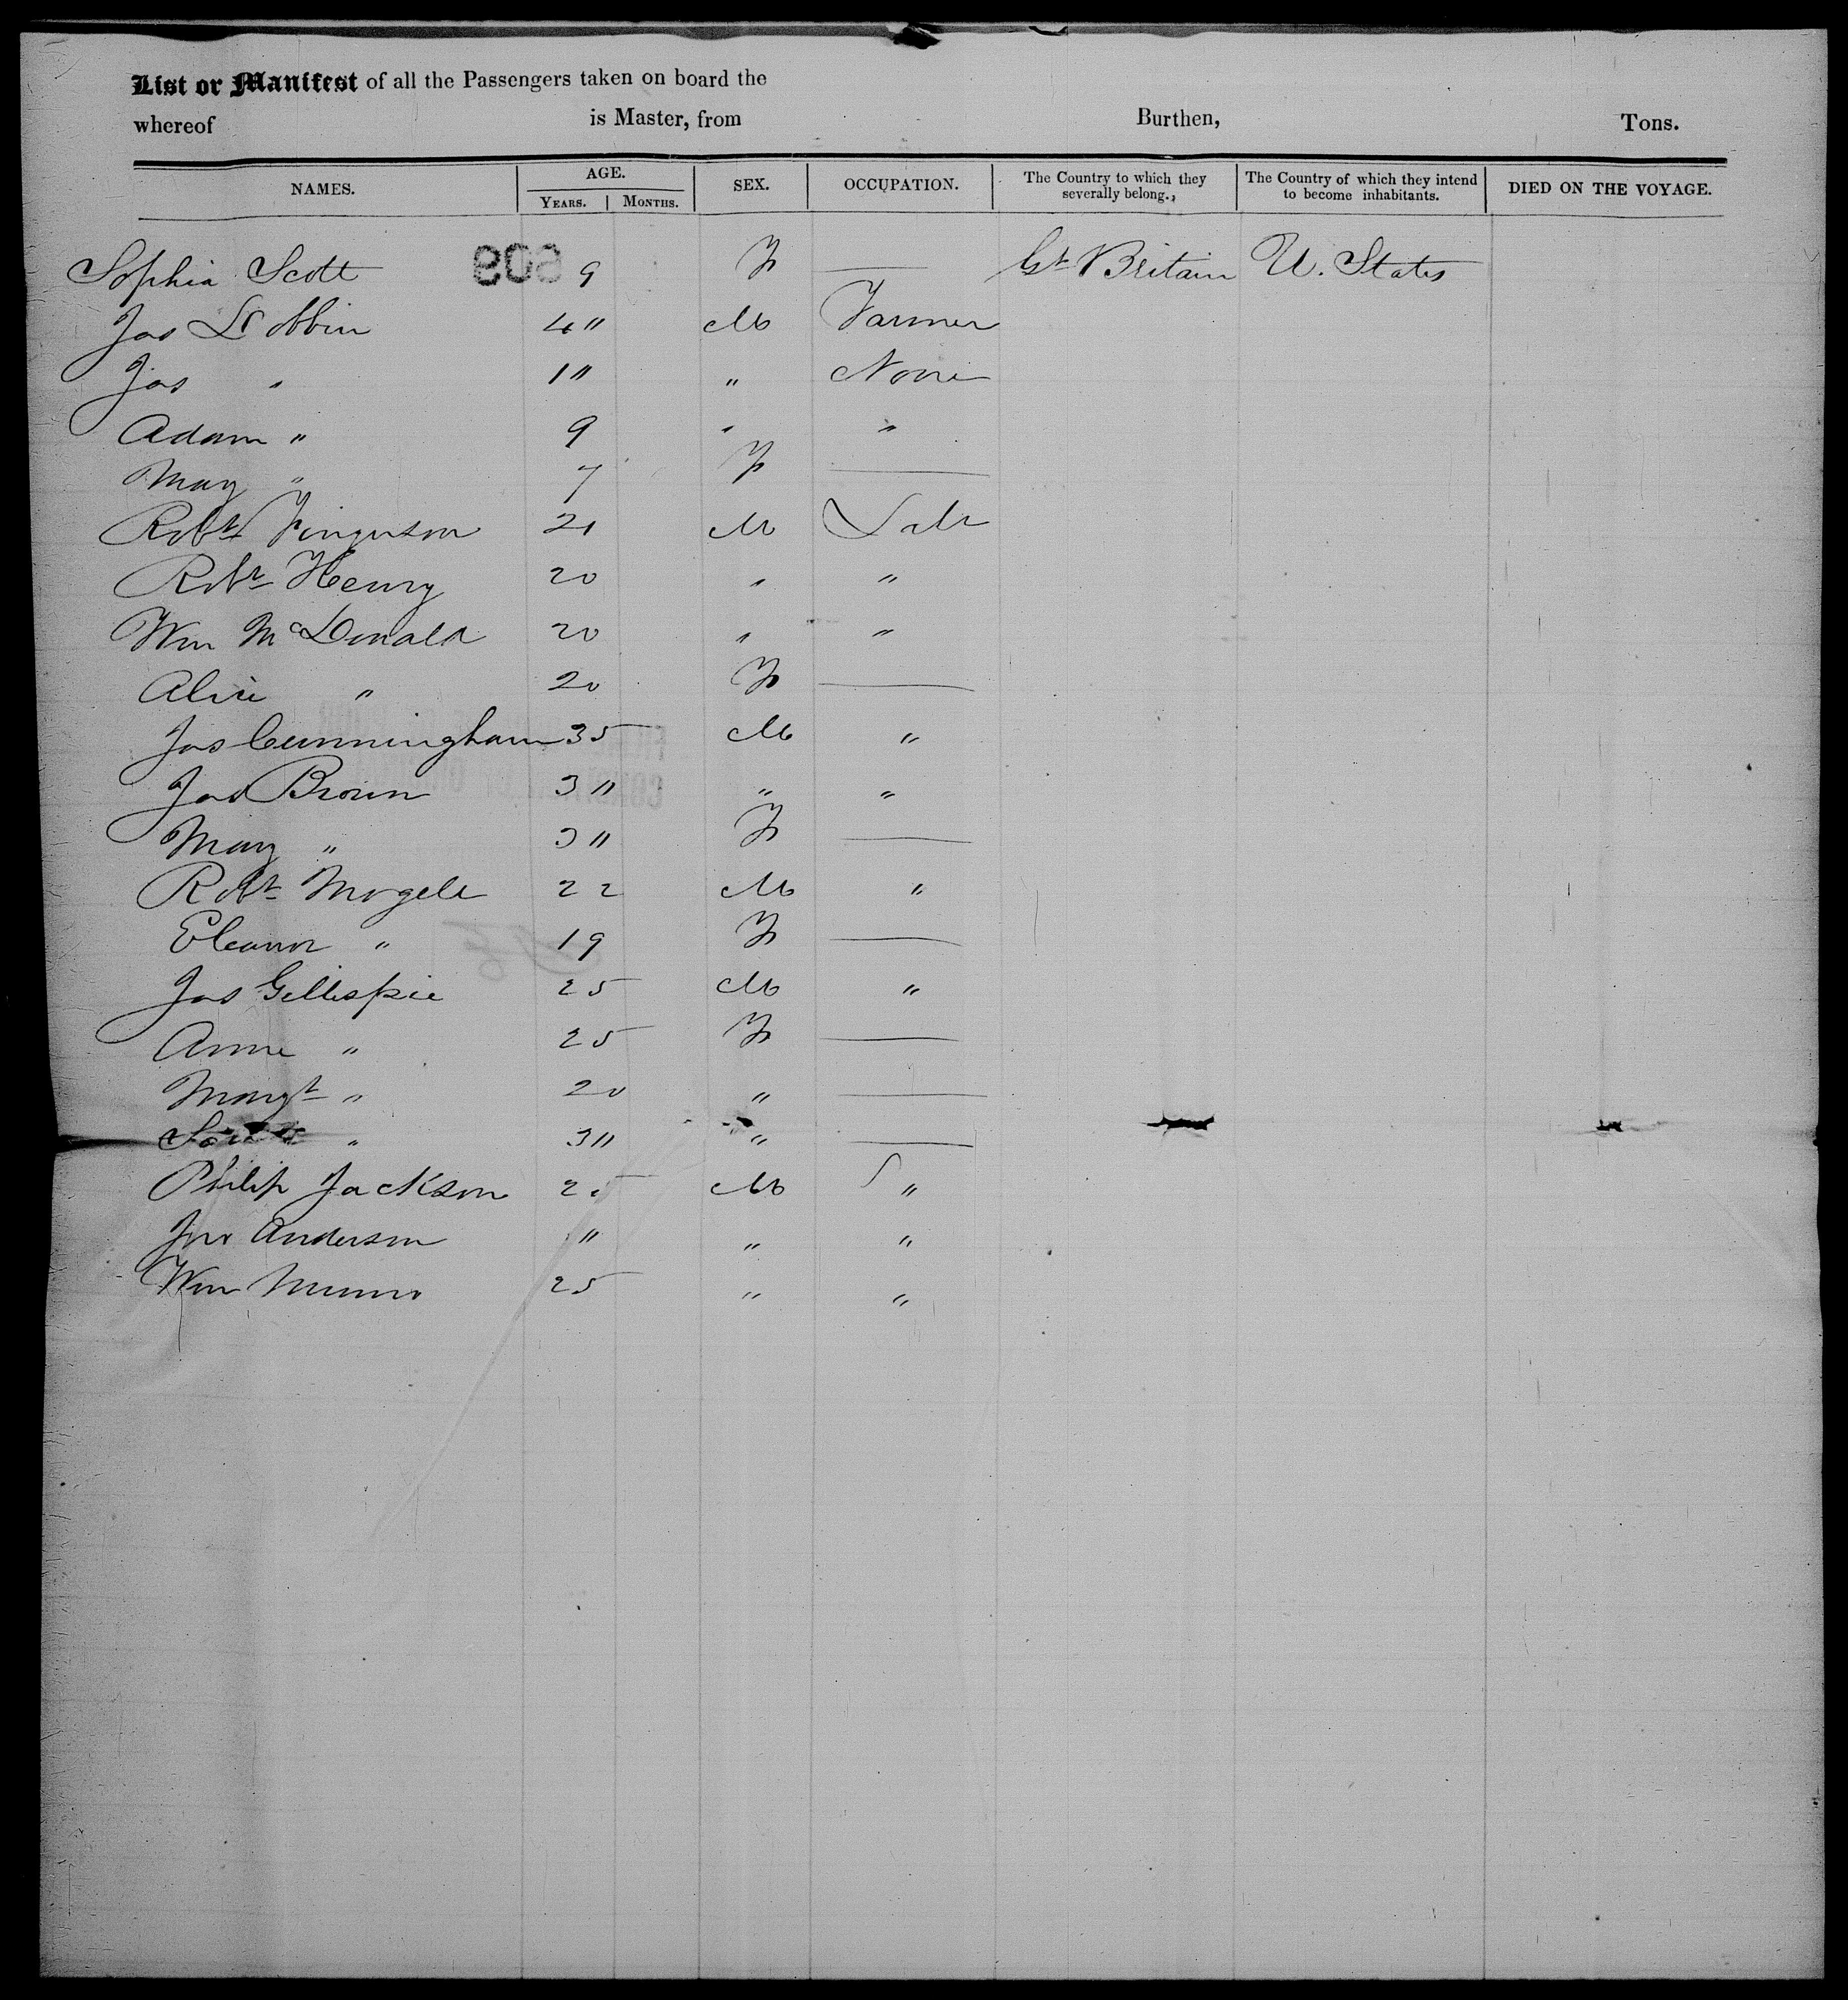 List or Manifest of all the Passengers taken on board the
whereof is Master, from Burthen, Tons.
NAMES. AGE. SEX. OCCUPATION. The Country to which they severally belong. The Country of which they intend to become inhabitants. DIED ON THE VOYAGE.
YEARS. MONTHS.
Sophia Scott 9 F — Gt Britain U. States
Jas Dobbin 4" M Farmer
Jas " 1" " None
Adam " 9 " "
Mary " 7 F —
Robt Finguson 21 M Labr
Robt Henry 20 " "
Wm McDonald 20 " "
Alice " 20 F —
Jas Cunningham 35 M "
Jas Brown 3" " "
Mary " 3" F —
Robt 22 M "
Eleanor " 19 F —
Jas Gillispie 25 M "
Anne " 25 F —
Margt " 20 " —
" 3" " —
Philip Jackson 25 M "
Jno Anderson " " "
Wm Munro 25 " "